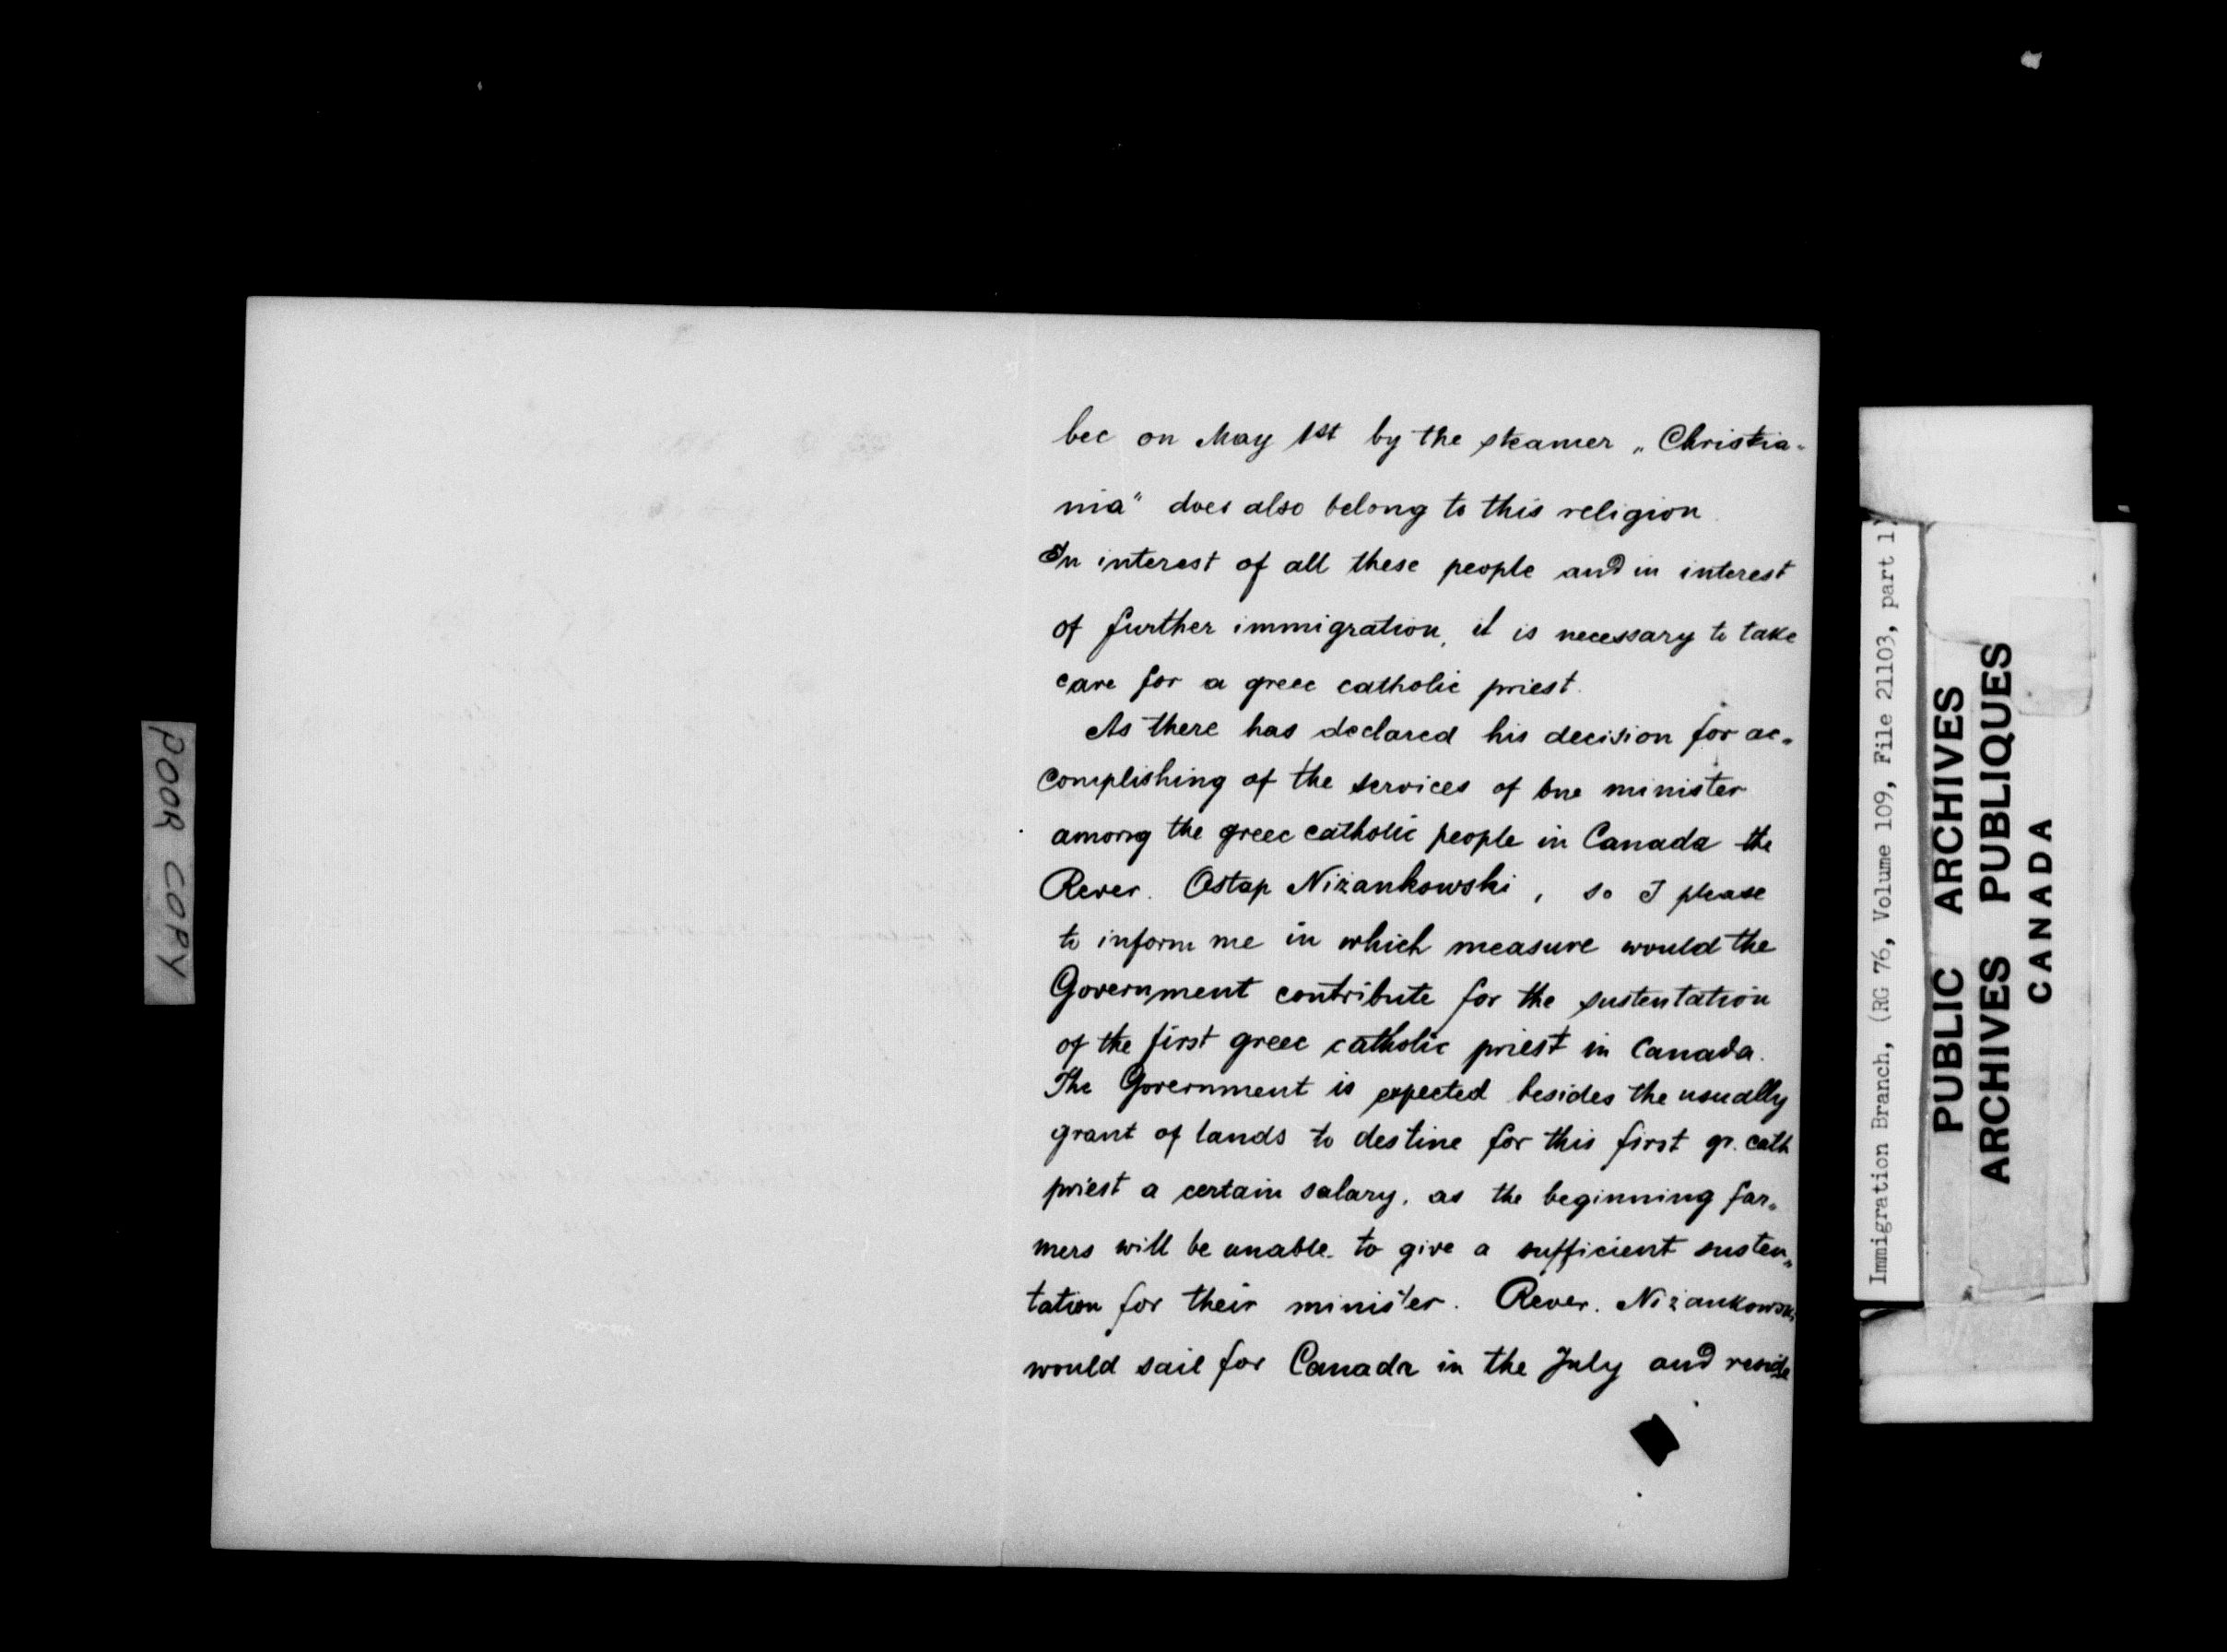 POOR COPY
bec on May 1st by the steamer „Christia-
nia" does also belong to this religion
In interest of all these people and in interest
of further immigration, it is necessary to take
care for a greec catholic priest.
As there has declared his decision for ac-
complishing of the services of one minister
among the greec catholic people in Canada the
Rever. Ostap Niżankowski, so I please
to inform me in which measure would the
Government contribute for the sustentation
of the first greec catholic priest in Canada.
The Government is expected besides the usually
grant of lands to destine for this first gr. cath
priest a certain salary, as the beginning far„
mers will be unable to give a sufficient susten„
tation for their minister. Rever. Niżankowski
would sail for Canada in the July and reside
Immigration Branch, (RG 76, Volume 109, File 21103, part 1)
PUBLIC ARCHIVES
ARCHIVES PUBLIQUES
CANADA